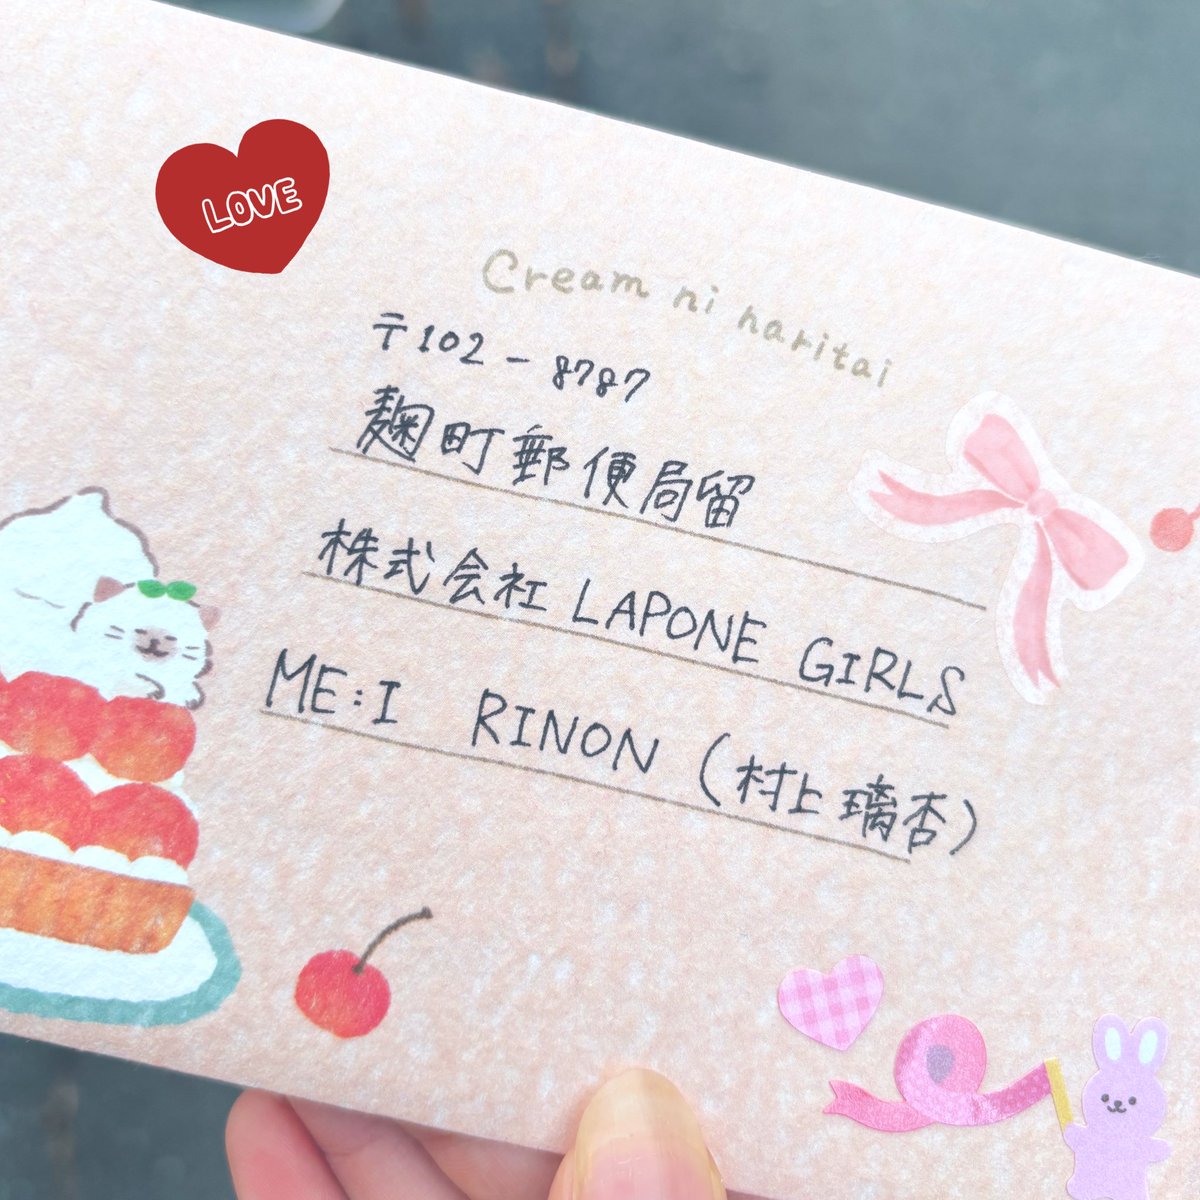 LOVE
Cream ni naritai
〒102-8787
麹町郵便局留
株式会社 LAPONE GIRLS
ME:I RINON (村上璃杏)